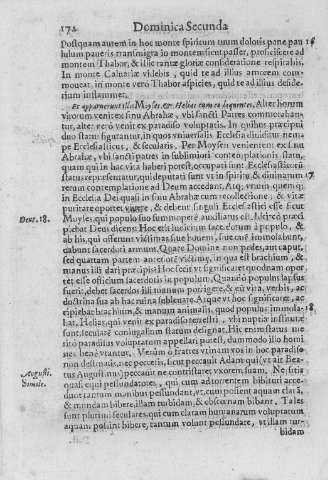 172 Dominica Secunda
Postquam autem in hoc monte spiritum tuum dolosis pone pau 16
lulum paueris, transmigra in montem sicut passer, proficiscere ad
montem Thabor, & illic tantæ gloriæ consideratione respirabis.
In monte Caluariæ videbis, quid te ad illius amorem com-
moueat: in monte verò Thabor aspicies, quid te ad illius deside-
rium inflammet.
Et apparuerunt illis Moyses, & Helias cum eo loquentes. Alter horum
virorum venit ex sinu Abrahæ, vbi sancti Patres commoraban-
tur, alter verò venit ex paradiso voluptatis. In quibus præcipui
duo status figurantur, in quos vniuersalis Ecclesia diuiditur, nem-
pe Ecclesiasticus, & secularis. Per Moysen venientem ex sinu
Abrahæ, vbi sancti patres in sublimiori contemplationis statu,
quam qui in hac vita haberi potest, occupati sunt: Ecclesiasticorum
status repræsentatur, qui deputati sunt vt in spiritu & diuinarum 17
rerum contemplatione ad Deum accedant. Atque vtinam quemque
in Ecclesia Dei quasi in sinu Abrahæ cum recollectione, & vitæ
puritate oportet viuere, & debent sæpuli Ecclesiastici esse sicut
Deut. 18. Moyses, qui populo suo summopere auxiliatus est. Idcircò præci
piebat Deus dicens: Hoc erit iudicium sacerdotum à populo, &
ab his, qui offerunt victimas siue bouem, siue ouem immolabunt,
dabunt sacerdoti armum. Quare Domine non pedes, aut caput,
sed quartam partem anteriorem victimæ, in qua est brachium, &
manus illi dari præcipis? Hoc fecit vt significaret quodnam opor
tet, esse officium sacerdotis in populo. Quando populus lapsus
fuerit, debet sacerdos illi manum porrigere, & eum vita, verbis, ac
doctrina sua ab hac ruina subleuare. Atque vt hoc significaret, ac
cipiebat brachium, & manum animalis, quod populus immola- 18
bat. Helias, qui venit ex paradiso terrestri, vbi nuptiæ institutæ
sunt, secularem coniugalium statum designat. Hic enim status me
ritò paradisus voluptatum appellari potest, dummodo illo homi
nes benè vtantur. Verùm ò fratres vtinam vos in hoc paradiso
non destruatis, nec peccetis, sicut peccauit Adam qui (vt ait Bea-
Augusti. tus Augustinus) peccauit ne contristaret vxorem suam. Ne sitis
Simile. quasi equi pessundatores, qui cum ad torrentem bibituri acce-
dunt tantum manibus pessundant, vt, cum possent aquam clarã,
& mundam bibere, illam turbidam, & obscœnam bibant. Tales
sunt plurimi seculares, qui cum claram humanarum voluptatum
aquam possint bibere, tantum volunt pessundare, vt illam tur-
bidam